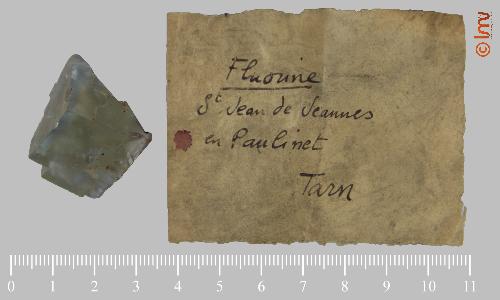 Fluorine
St Jean de Jeannes
en Paulinet
Tarn
© lmv
0 1 2 3 4 5 6 7 8 9 10 11